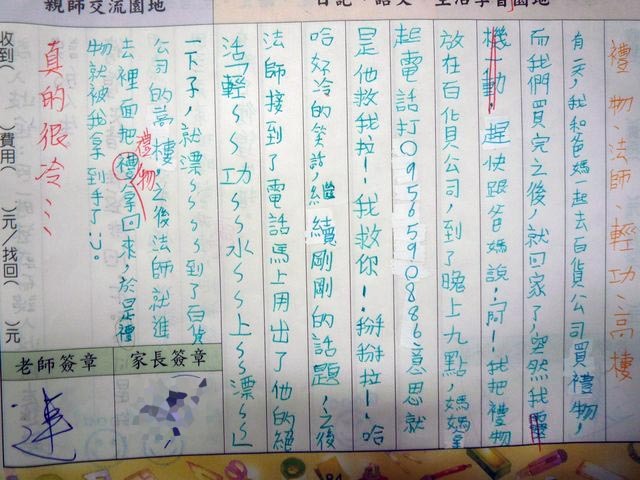 親師交流園地
日記、語文、生活學習園地
禮物、法師、輕功、高樓
有一天，我和爸媽一起去百貨公司買禮物，
而我們買完之後，就回家了，突然我
機一動，趕快跟爸媽說：「啊！我把禮物
放在百貨公司，到了晚上九點，媽媽
起電話打0956590886意思就
是你救我拉！我救你！掰掰拉！哈
哈好冷的笑話，繼續剛剛的話題，之後
法師接到了電話馬上用出了他的絕
活「輕～～功～～水～～上～～漂～～」
一下子，就漂～～～～到了百貨
公司的高樓，之後法師就進
去裡面把禮物拿回來，於是禮
物就被我拿到手了。
真的很冷…
收到( )費用( )元/找回( )元
老師簽章
家長簽章
84